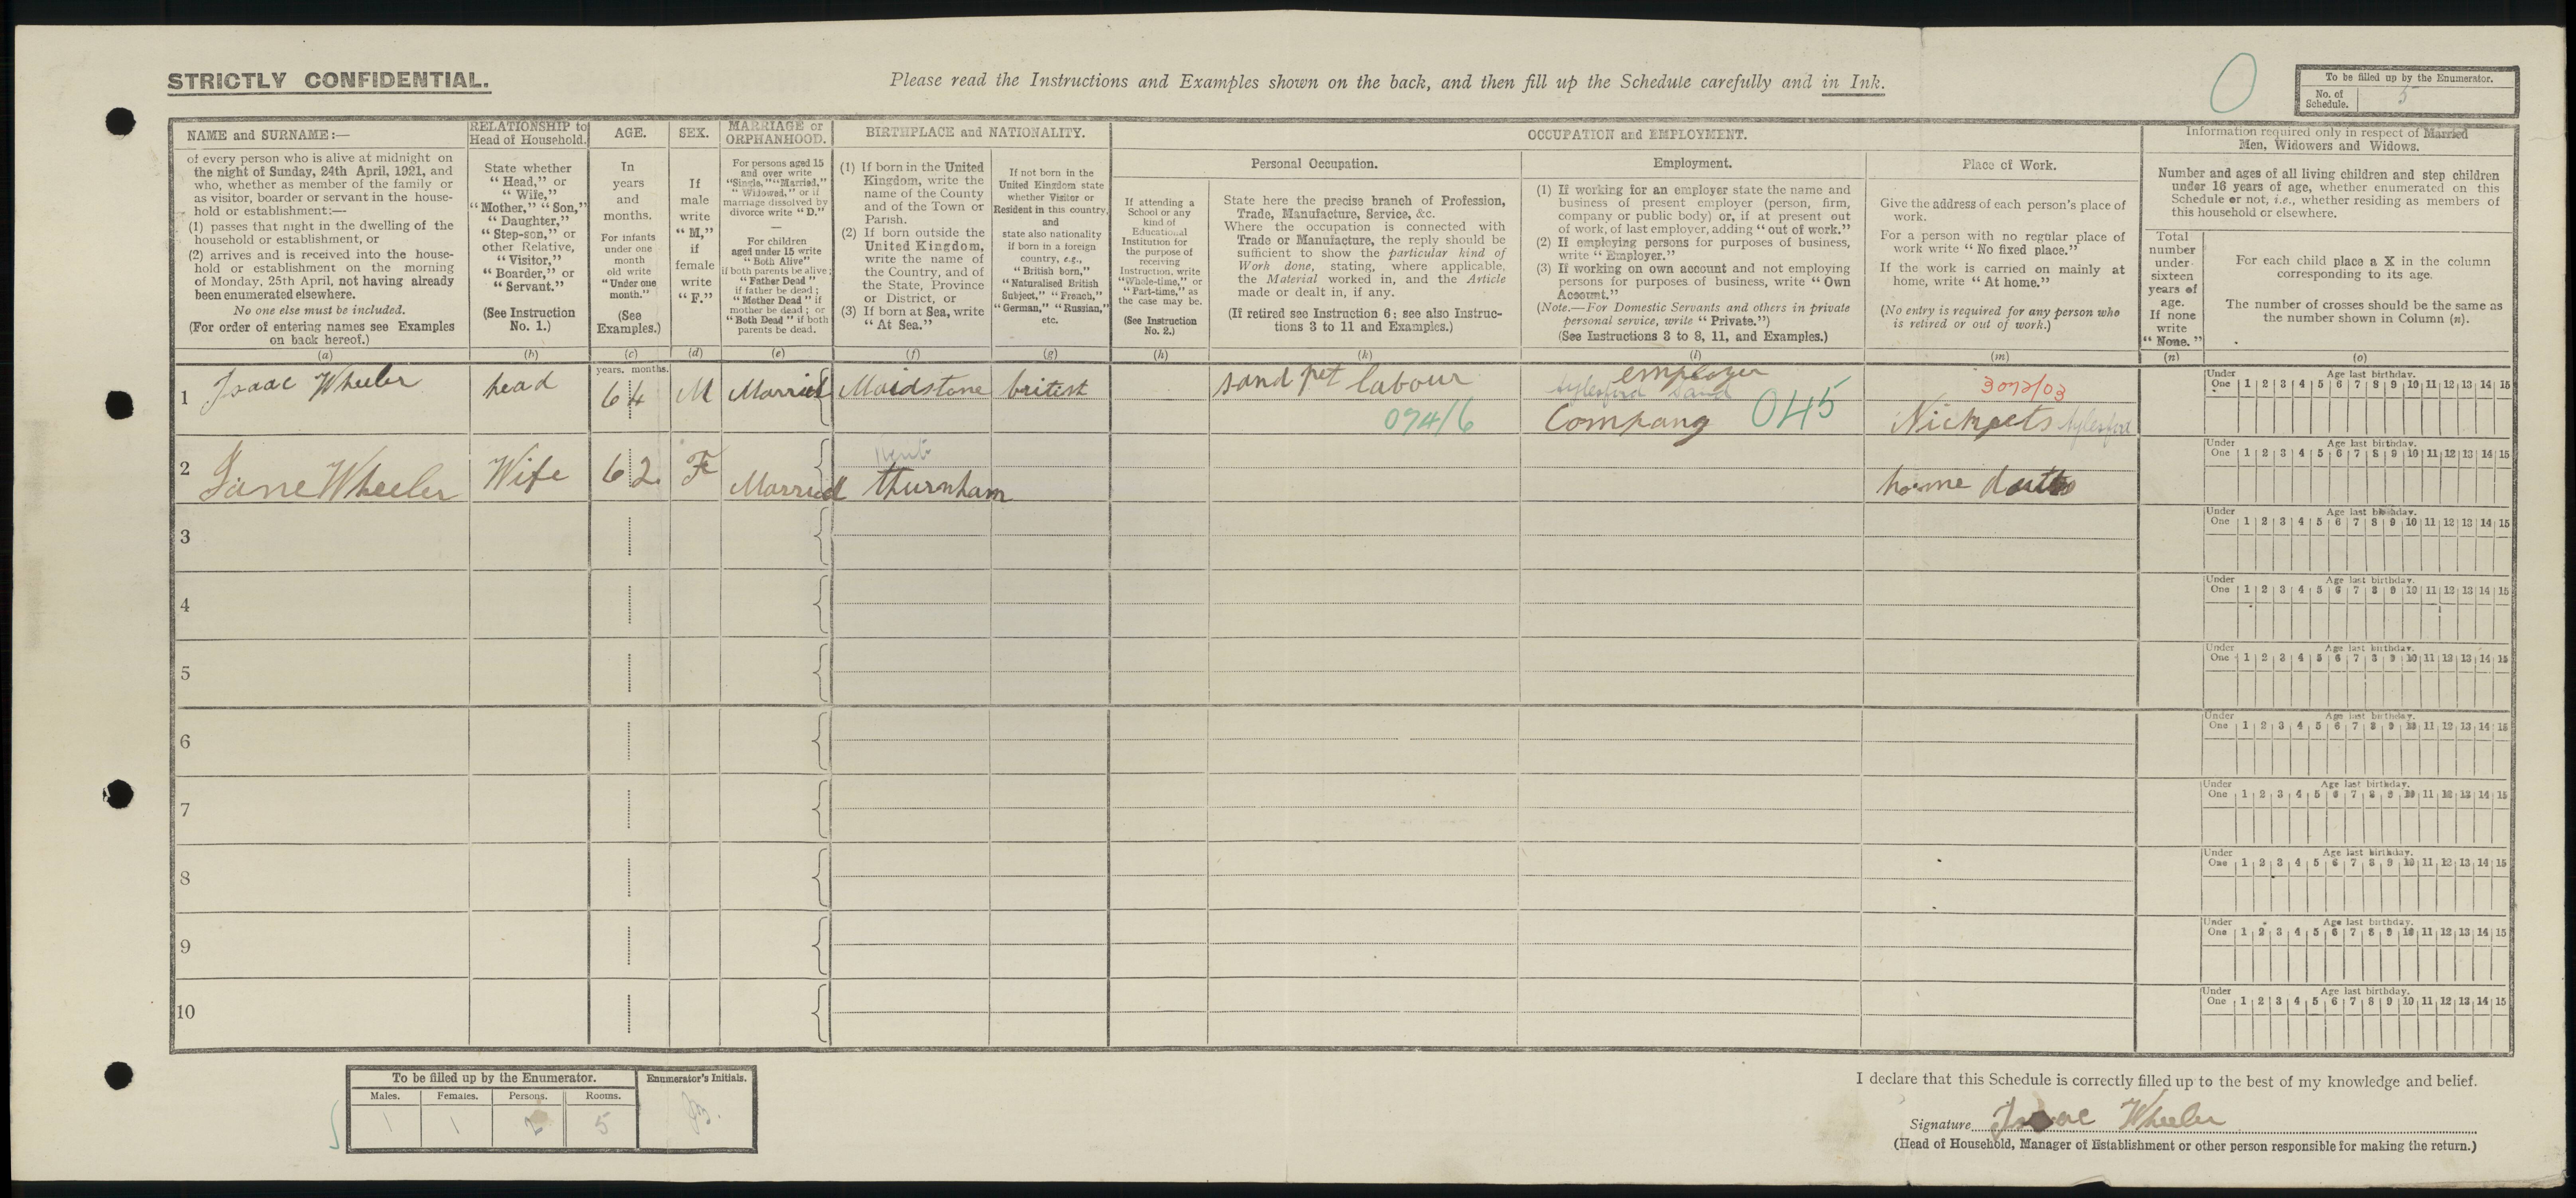 STRICTLY CONFIDENTIAL.
Please read the Instructions and Examples shown on the back, and then fill up the Schedule carefully and in Ink.
To be filled up by the Enumerator.
No. of Schedule. 5
NAME and SURNAME:—
of every person who is alive at midnight on
the night of Sunday, 24th April, 1921, and
who, whether as member of the family or
as visitor, boarder or servant in the house-
hold or establishment:—
(1) passes that night in the dwelling of the
household or establishment, or
(2) arrives and is received into the house-
hold or establishment on the morning
of Monday, 25th April, not having already
been enumerated elsewhere.
No one else must be included.
(For order of entering names see Examples
on back hereof.)
(a)
RELATIONSHIP to
Head of Household.
State whether
"Head," or
"Wife,"
"Mother," "Son,"
"Daughter,"
"Step-son," or
other Relative,
"Visitor,"
"Boarder," or
"Servant."
(See Instruction
No. 1.)
(b)
AGE.
In
years
and
months.
For infants
under one
month
old write
"Under one
month."
(See
Examples.)
(c)
SEX.
If
male
write
"M,"
if
female
write
"F."
(d)
MARRIAGE or
ORPHANHOOD.
For persons aged 15
and over write
"Single," "Married,"
"Widowed," or if
marriage dissolved by
divorce write "D."
—
For children
aged under 15 write
"Both Alive"
if both parents be alive;
"Father Dead"
if father be dead;
"Mother Dead" if
mother be dead; or
"Both Dead" if both
parents be dead.
(e)
BIRTHPLACE and NATIONALITY.
(1) If born in the United
Kingdom, write the
name of the County
and of the Town or
Parish.
(2) If born outside the
United Kingdom,
write the name of
the Country, and of
the State, Province
or District, or
(3) If born at Sea, write
"At Sea."
(f)
If not born in the
United Kingdom state
whether Visitor or
Resident in this country,
and
state also nationality
if born in a foreign
country, e.g.,
"British born,"
"Naturalised British
Subject," "French,"
"German," "Russian,"
etc.
(g)
OCCUPATION and EMPLOYMENT.
If attending a
School or any
kind of
Educational
Institution for
the purpose of
receiving
Instruction, write
"Whole-time," or
"Part-time," as
the case may be.
(See Instruction
No. 2.)
(h)
Personal Occupation.
State here the precise branch of Profession,
Trade, Manufacture, Service, &c.
Where the occupation is connected with
Trade or Manufacture, the reply should be
sufficient to show the particular kind of
Work done, stating, where applicable,
the Material worked in, and the Article
made or dealt in, if any.
(If retired see Instruction 6; see also Instruc-
tions 3 to 11 and Examples.)
(k)
Employment.
(1) If working for an employer state the name and
business of present employer (person, firm,
company or public body) or, if at present out
of work, of last employer, adding "out of work."
(2) If employing persons for purposes of business,
write "Employer."
(3) If working on own account and not employing
persons for purposes of business, write "Own
Account."
(Note.—For Domestic Servants and others in private
personal service, write "Private.")
(See Instructions 3 to 8, 11, and Examples.)
(l)
Place of Work.
Give the address of each person's place of
work.
For a person with no regular place of
work write "No fixed place."
If the work is carried on mainly at
home, write "At home."
(No entry is required for any person who
is retired or out of work.)
(m)
Information required only in respect of Married
Men, Widowers and Widows.
Number and ages of all living children and step children
under 16 years of age, whether enumerated on this
Schedule or not, i.e., whether residing as members of
this household or elsewhere.
Total
number
under
sixteen
years of
age.
If none
write
"None."
(n)
For each child place a X in the column
corresponding to its age.
The number of crosses should be the same as
the number shown in Column (n).
(o)
years. months.
1 Isaac Wheeler head 64 M Married Maidstone british sand pet labour employer
Aylesford Sand
Company 045 094/6
Aylesford
2 Jane Wheeler Wife 62 F Married Kent
thurnham home
3
4
5
6
7
8
9
10
Under One Age last birthday. 1 2 3 4 5 6 7 8 9 10 11 12 13 14 15
Under One Age last birthday. 1 2 3 4 5 6 7 8 9 10 11 12 13 14 15
Under One Age last birthday. 1 2 3 4 5 6 7 8 9 10 11 12 13 14 15
Under One Age last birthday. 1 2 3 4 5 6 7 8 9 10 11 12 13 14 15
Under One Age last birthday. 1 2 3 4 5 6 7 8 9 10 11 12 13 14 15
Under One Age last birthday. 1 2 3 4 5 6 7 8 9 10 11 12 13 14 15
Under One Age last birthday. 1 2 3 4 5 6 7 8 9 10 11 12 13 14 15
Under One Age last birthday. 1 2 3 4 5 6 7 8 9 10 11 12 13 14 15
Under One Age last birthday. 1 2 3 4 5 6 7 8 9 10 11 12 13 14 15
Under One Age last birthday. 1 2 3 4 5 6 7 8 9 10 11 12 13 14 15
To be filled up by the Enumerator.
Males. Females. Persons. Rooms.
1 1 2 5
Enumerator's Initials.
I declare that this Schedule is correctly filled up to the best of my knowledge and belief.
Signature Isaac Wheeler
(Head of Household, Manager of Establishment or other person responsible for making the return.)